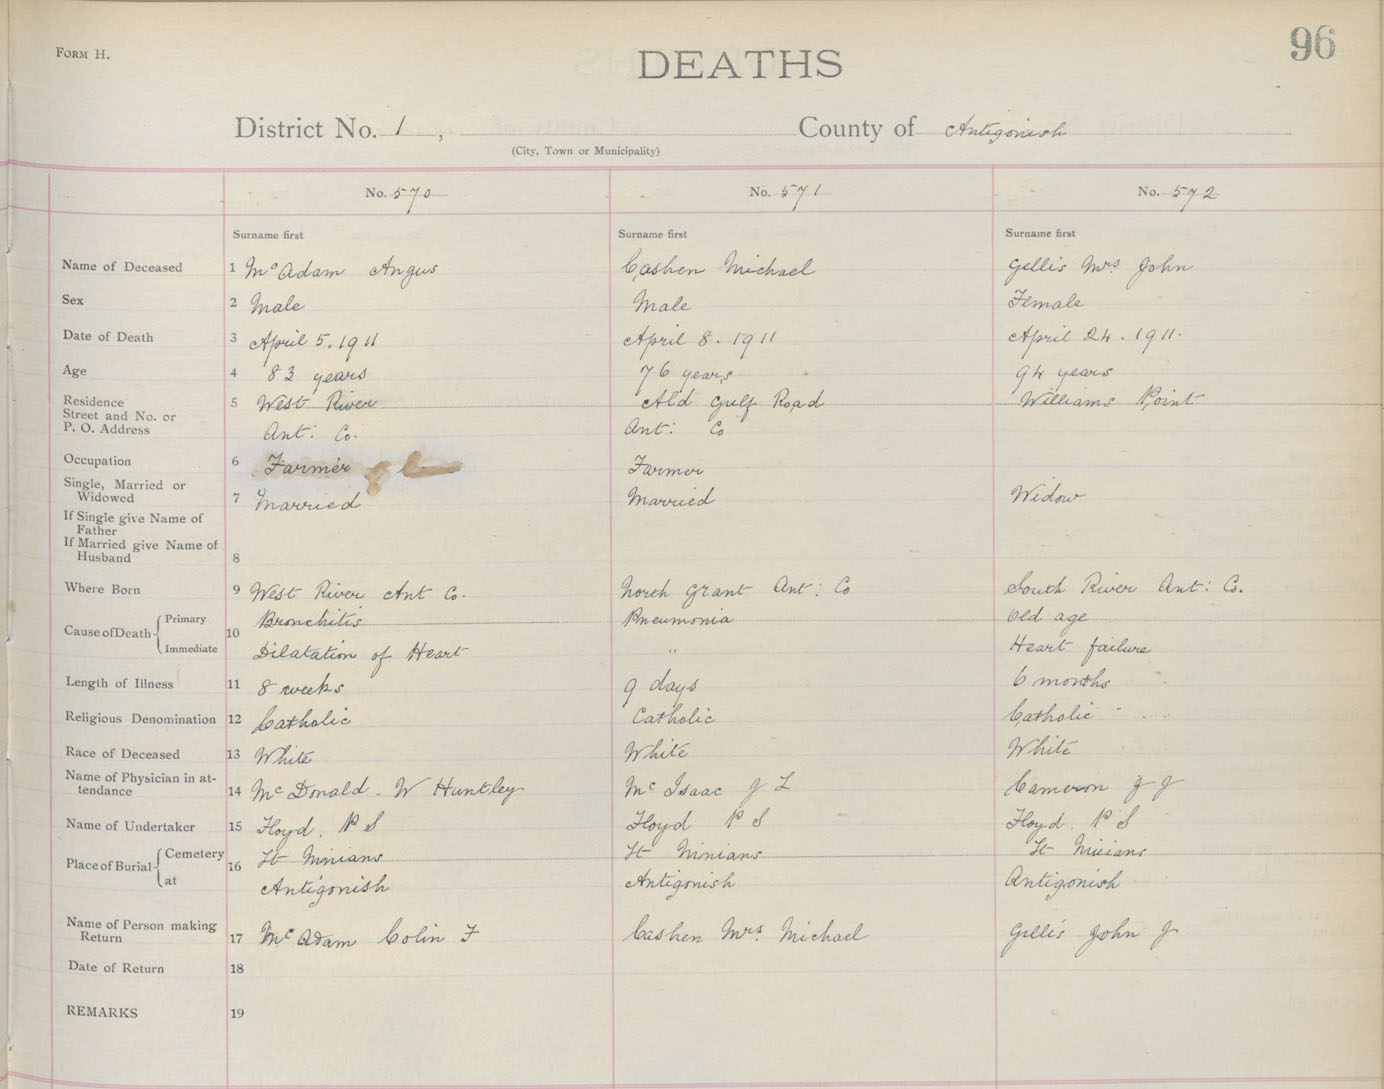 FORM H.
96
DEATHS
District No. 1 , County of Antigonish
(City, Town or Municipality)
No. 570 No. 571 No. 572
Surname first Surname first Surname first
Name of Deceased 1 McAdam Angus Cashen Michael Gellis Mrs John
Sex 2 Male Male Female
Date of Death 3 April 5. 1911 April 8. 1911 April 24. 1911.
Age 4 83 years 76 years 94 years
Residence 5 West River Old Gulf Road Williams Point
Street and No. or
P. O. Address Ant: Co. Ant: Co
Occupation 6 Farmer Farmer
Single, Married or
Widowed 7 Married Married Widow
If Single give Name of
Father
If Married give Name of
Husband 8
Where Born 9 West River Ant Co. North Grant Ant: Co South River Ant: Co.
Cause of Death Primary 10 Bronchitis Pneumonia Old age
Immediate Dilatation of Heart " Heart failure
Length of Illness 11 8 weeks 9 days 6 months
Religious Denomination 12 Catholic Catholic Catholic
Race of Deceased 13 White White White
Name of Physician in at-
tendance 14 McDonald. W Huntley McIsaac J L Cameron J J
Name of Undertaker 15 Floyd. P S Floyd P S Floyd. P S
Place of Burial Cemetery 16 St Ninians St Ninians St Ninians
at Antigonish Antigonish Antigonish
Name of Person making
Return 17 McAdam Colin F Cashen Mrs. Michael Gellis John J
Date of Return 18
REMARKS 19